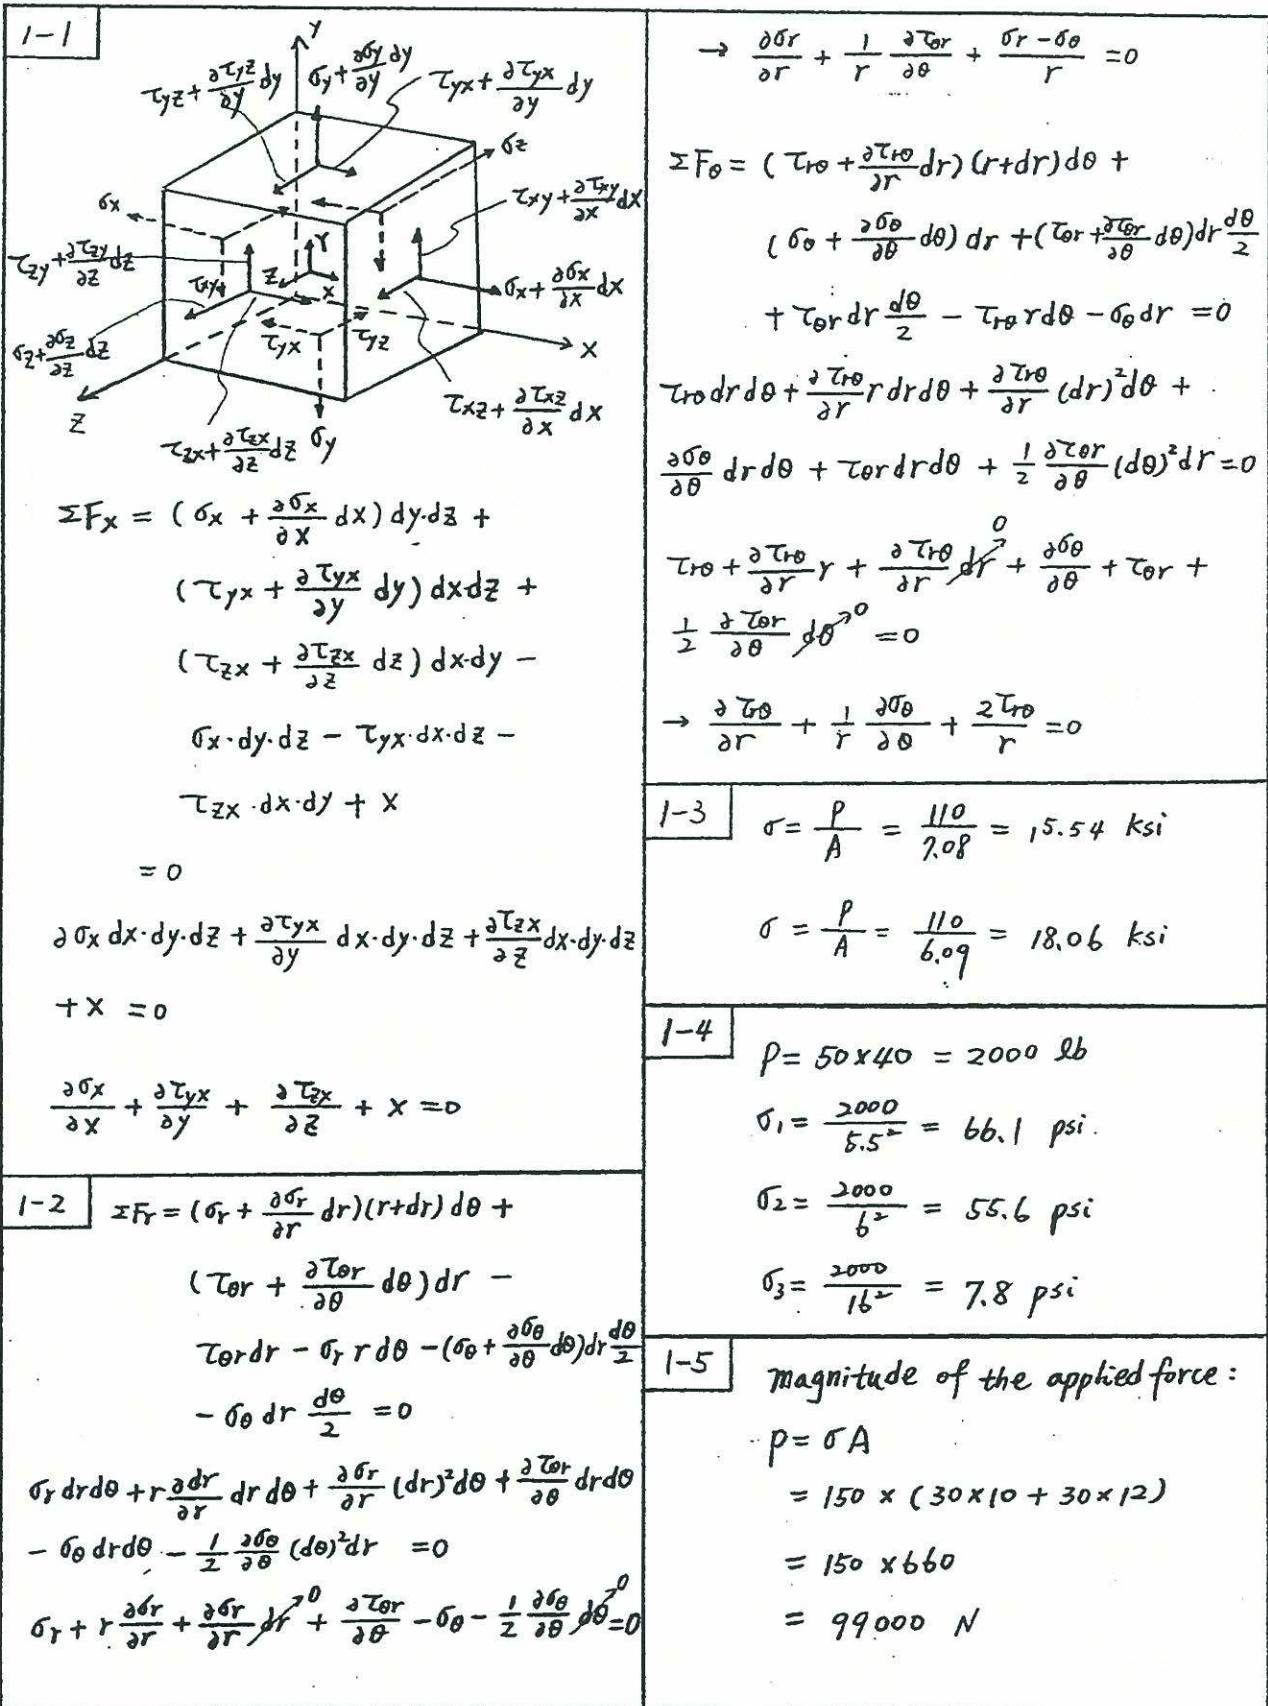 1-1
Y
τyz + ∂τyz/∂y dy
σy + ∂σy/∂y dy
τyx + ∂τyx/∂y dy
σz
σx
τxy + ∂τxy/∂x dx
τzy + ∂τzy/∂z dz
τxy
Y
Z
X
σx + ∂σx/∂x dx
σz + ∂σz/∂z dz
τyx
τyz
X
Z
τxz + ∂τxz/∂x dx
τzx + ∂τzx/∂z dz
σy
ΣFx = (σx + ∂σx/∂x dx) dy·dz +
(τyx + ∂τyx/∂y dy) dx·dz +
(τzx + ∂τzx/∂z dz) dx·dy −
σx·dy·dz − τyx·dx·dz −
τzx·dx·dy + X
= 0
∂σx dx·dy·dz + ∂τyx/∂y dx·dy·dz + ∂τzx/∂z dx·dy·dz
+ X = 0
∂σx/∂x + ∂τyx/∂y + ∂τzx/∂z + X = 0
1-2
ΣFr = (σr + ∂σr/∂r dr)(r+dr) dθ +
(τθr + ∂τθr/∂θ dθ) dr −
τθr dr − σr r dθ − (σθ + ∂σθ/∂θ dθ) dr dθ/2
− σθ dr dθ/2 = 0
σr dr dθ + r ∂dr/∂r dr dθ + ∂σr/∂r (dr)² dθ + ∂τθr/∂θ dr dθ
− σθ dr dθ − 1/2 ∂σθ/∂θ (dθ)² dr = 0
σr + r ∂σr/∂r + ∂σr/∂r dr→0 + ∂τθr/∂θ − σθ − 1/2 ∂σθ/∂θ dθ→0 = 0
→ ∂σr/∂r + 1/r ∂τθr/∂θ + (σr − σθ)/r = 0
ΣFθ = (τrθ + ∂τrθ/∂r dr)(r+dr) dθ +
(σθ + ∂σθ/∂θ dθ) dr + (τθr + ∂τθr/∂θ dθ) dr dθ/2
+ τθr dr dθ/2 − τrθ r dθ − σθ dr = 0
τrθ dr dθ + ∂τrθ/∂r r dr dθ + ∂τrθ/∂r (dr)² dθ +
∂σθ/∂θ dr dθ + τθr dr dθ + 1/2 ∂τθr/∂θ (dθ)² dr = 0
τrθ + ∂τrθ/∂r r + ∂τrθ/∂r dr→0 + ∂σθ/∂θ + τθr +
1/2 ∂τθr/∂θ dθ→0 = 0
→ ∂τrθ/∂r + 1/r ∂σθ/∂θ + 2τrθ/r = 0
1-3
σ = P/A = 110/7.08 = 15.54 ksi
σ = P/A = 110/6.09 = 18.06 ksi
1-4
P = 50×40 = 2000 lb
σ1 = 2000/5.5² = 66.1 psi.
σ2 = 2000/6² = 55.6 psi
σ3 = 2000/16² = 7.8 psi
1-5
magnitude of the applied force:
P = σA
= 150 × (30×10 + 30×12)
= 150 × 660
= 99000 N